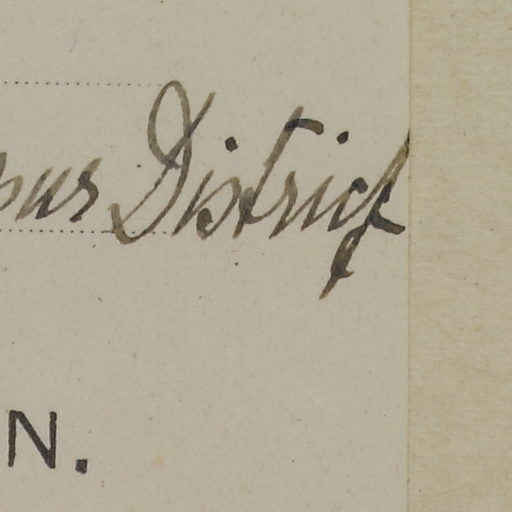 pur District
N.